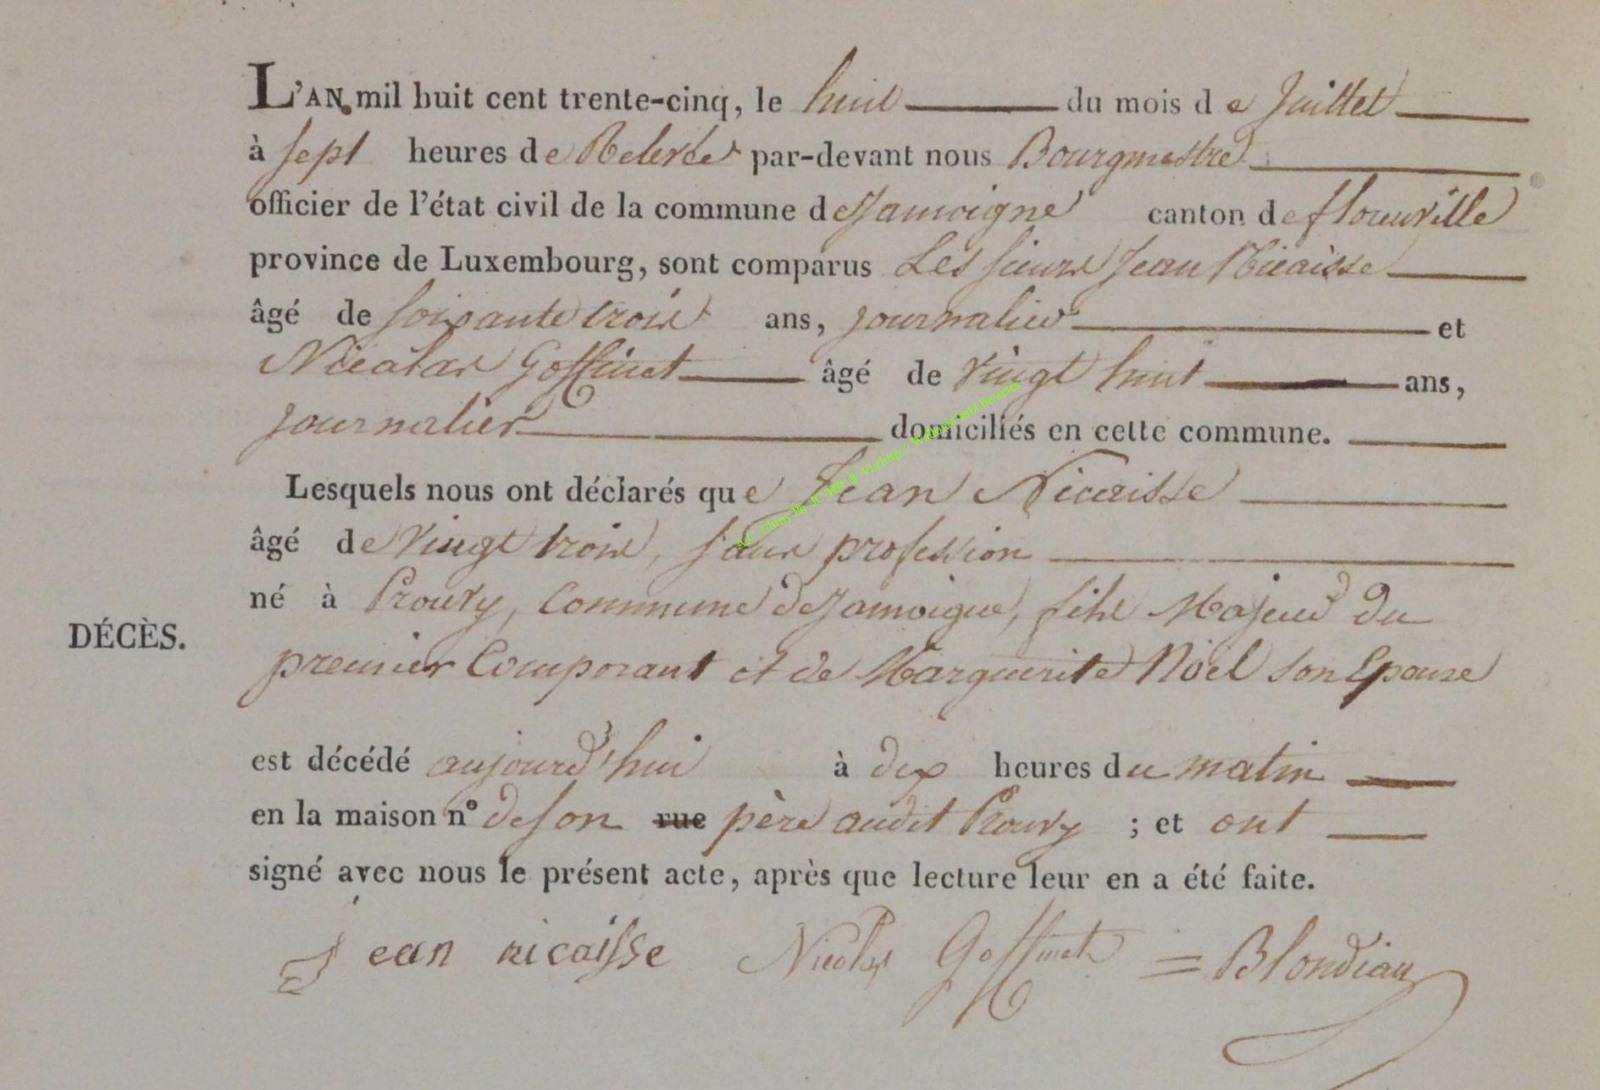 L'AN mil huit cent trente-cinq, le huit du mois de Juillet
à sept heures de Relevée par-devant nous Bourgmestre
officier de l'état civil de la commune de Jamoigne canton de florenville
province de Luxembourg, sont comparus Les sieurs Jean Nicaisse
âgé de soixante trois ans, journalier et
Nicolas Goffinet âgé de vingt huit ans,
journalier domiciliés en cette commune.
Lesquels nous ont déclarés que Jean Nicaisse
âgé de vingt trois, sans profession
né à Prouvy, Commune de Jamoigne, fils Majeur du
DÉCÈS.
premier Comparant et de Marguerite Noël son Epouse
est décédé aujourd'hui à dix heures du matin
en la maison n° de son rue père audit Prouvy ; et ont
signé avec nous le présent acte, après que lecture leur en a été faite.
Jean nicaisse Nicolas Goffinet Blondiau